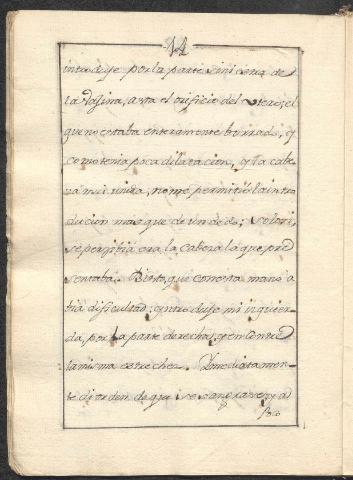 12
introduje por la parte siniestra de
la Vajina, asta el orificio del Utero; el
que no estaba enteramente borrado, y
como tenia poca dilatacion, y la cabe
za mui unida, no me permitió la intro
ducion mas que de un dedo; solori,
se persibia era la cabeza la que pre
sentaba. Visto, que con esta mano a
bia dificultad; introduje mi izquier
da, por la parte derecha, y encontré
la misma estrechez. Ymediatamen
te di orden de que se sangrara, y a